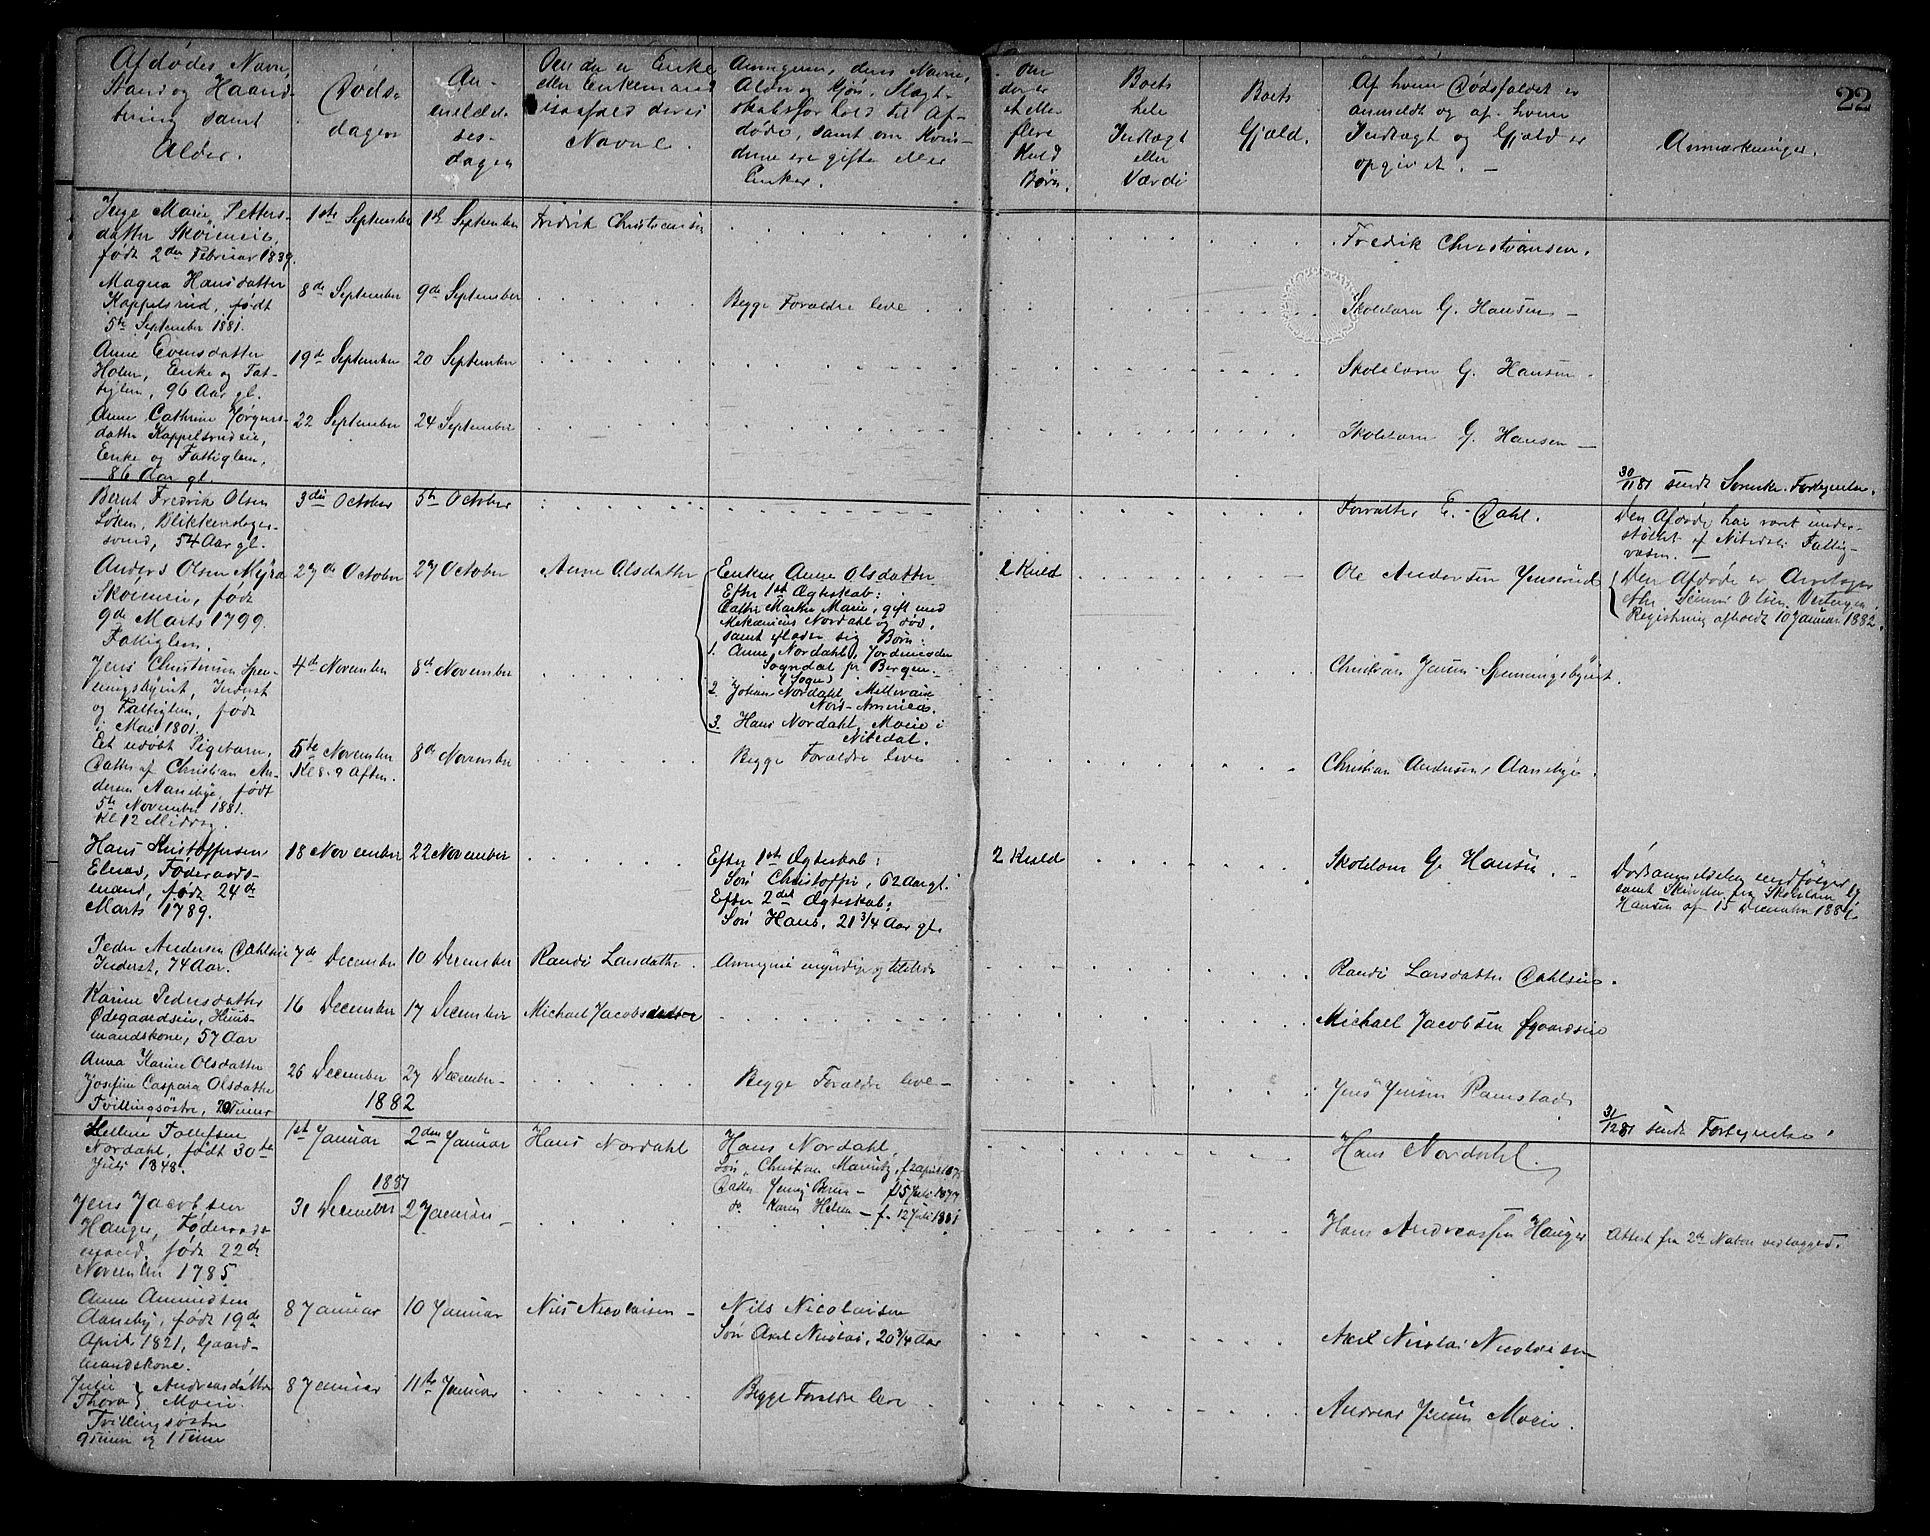 22
Afdødes Navn,
Stand og Haand-
tering samt
Alder.
Døds-
dagen
An-
meldel-
ses-
dagen
Om der er Enke
eller Enkemand
isaafald deres
Navne.
Arvingerne, deres Navne,
Alder og Kjøn, Slægt-
skabsforhold til Af-
døde, samt om Kvin-
derne ere gifte eller
Enker.
Om
der er
et eller
flere
Kuld
Børn.
Boets
hele
Indtægt
eller
Værdi
Boets
Gjæld.
Af hvem Dødsfaldet er
anmeldt og af hvem
Indtægt og Gjæld er
opgivet. —
Anmærkninger.
Inge Marie Petters-
datter Skoieneie,
født 2den Februar 1839.
1ste September
1ste September
Fredrik Christiansen
Fredrik Christiansen.
Magna Hansdatter
Kappelsrud, født
5te September 1881.
8de September
9de September
Begge Forældre leve
Skolelærer G. Hansen —
Anne Evensdatter
Holm, Enke og Fat-
tiglem, 96 Aar gl.
19de September
20 September
Skolelærer G. Hansen
Anne Cathrine Jørgens-
datter Kappelsrudeie,
Enke og Fattiglem,
86 Aar gl.
22 September
24 September
Skolelærer G. Hansen —
30/11 81 sendt Sorenskr. Fortegnelse.
Bernt Fredrik Olsen
Løken, Blikkenslager-
svend, 54 Aar gl.
3die October
5te October
Forvalter E. Dahl.
Den Afdøde har været under-
støttet af Nitedals Fattig-
væsen. —
Anders Olsen Myra
Skoieneie, født
9de Marts 1799.
Fattiglem.
27de October
27 October
Anne Olsdatter
Enken Anne Olsdatter
Efter 1ste Ægteskab:
Datter Marthe Marie, gift med
Mekanicus Nordahl og død,
samt eflader sig Børn:
1. Anne Nordahl, Jordemoder
Sogndal pr Bergen
(Sogn)
2. Johan Nordahl,
Nord-Amerika
3. Hans Nordahl, Moeie i
Nitedal.
2 Kuld
Ole Andersen
Den Afdøde er Arvetager
efter Simen Olsen
Registrering afholdt 10 Januar 1882.
Jens Christiansen Spen-
ningsbyeiet, Inderst
og Fattiglem, født
i Mai 1801.
4de November
8de November
Christian Jensen Spenningsbyeiet.
Et udøbt Pigebarn,
Datter af Christian An-
dersen Aanebye, født
5te November 1881.
Kl 12 Middag.
5te November
Kl 8-9 Aften.
8de November
Begge Forældre leve
Christian Andersen, Aanebye.
Hans Kristoffersen
Elnes, Føderaads-
mand, født 24de
Marts 1789.
18 November
22 November
Efter 1ste Ægteskab:
Søn Christoffer, 62 Aar gl.
Efter 2det Ægteskab:
Søn Hans, 21 3/4 Aar gl.
2 Kuld
Skolelærer G. Hansen
Dødsanmeldelsen medfølger
samt Skrivelse fra Skolelærer G.
Hansen af 15 December 1881.
Peder Andersen Dahlseie
Inderst, 74 Aar.
7de December
10 December
Randi Larsdatter
Arvingerne myndige og tilstede
Randi Larsdatter Dahlseie.
Karine Pedersdatter
Ødegaardseie, Huus-
mandskone, 57 Aar
16 December
17 December
Michael Jacobsen
Michael Jacobsen Øgaardseie
Anna Karine Olsdatter
Josefine Caspara Olsdatter
Tvillingsøstre, 20 Timer
26 December
27 December
Begge Forældre leve —
Jens Jensen Ramstad
31/12 81 sendt Fortegnelse.
1882
Hellene Tollefsen
Nordahl, født 30te
Juli 1848.
1st Januar
2den Januar
Hans Nordahl
Hans Nordahl,
Søn, Christian f 2 april 187
Datter Jenny f 15 Juli 1877
do Karen Helene — f. 12 Juli 1881
Hans Nordahl.
1881
Jens Jacobsen
Hauger, Føderaads-
mand, født 22de
November 1785
31 December
2 Januar —
Hans Andreassen Hauger
Attest fra 2de Naboer vedlægges.
Anne Amundsen
Aaneby, født 19de
April 1821, Gaard-
mandskone.
8 Januar
10 Januar
Nils Nicolaisen —
Nils Nicolaisen
Søn Axel Nicolai, 20 3/4 Aar
Axel Nicolai Nicolaisen
Julie } Andreasdatter
Thora } Moeie
Tvillingsøstre
9 Timer og 1 Time
8 Januar
11te Januar
Begge Forældre leve
Andreas Jensen Moeie.